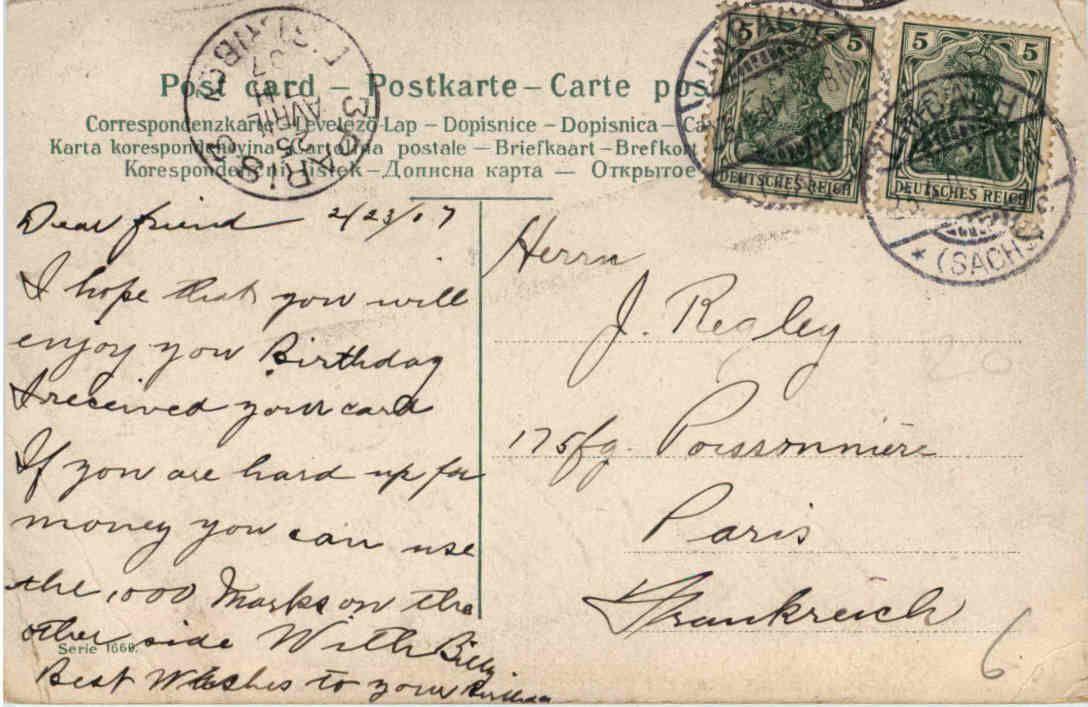 Post card – Postkarte – Carte pos
Correspondenzkarte – Levelező-Lap – Dopisnice – Dopisnica – Ca
Karta korespondencyjna – Cartolina postale – Briefkaart – Brefkort
Korespondenční lístek – Дописна карта — Открытое
PARIS
25
AVRIL
07
DISTRIBUTION
5 5
DEUTSCHES REICH
5 5
DEUTSCHES REICH
LIMBACH
* (SACHS.)
Dear friend 2/23/07
I hope that you will
enjoy you Birthday
I received your card
If you are hard up for
money you can use
the 1,000 Marks on the
other side With Billy
Best Wishes to your Birthday
Serie 1669.
Herrn
J. Regley
175 fg. Poissonnière
Paris
Frankreich
6